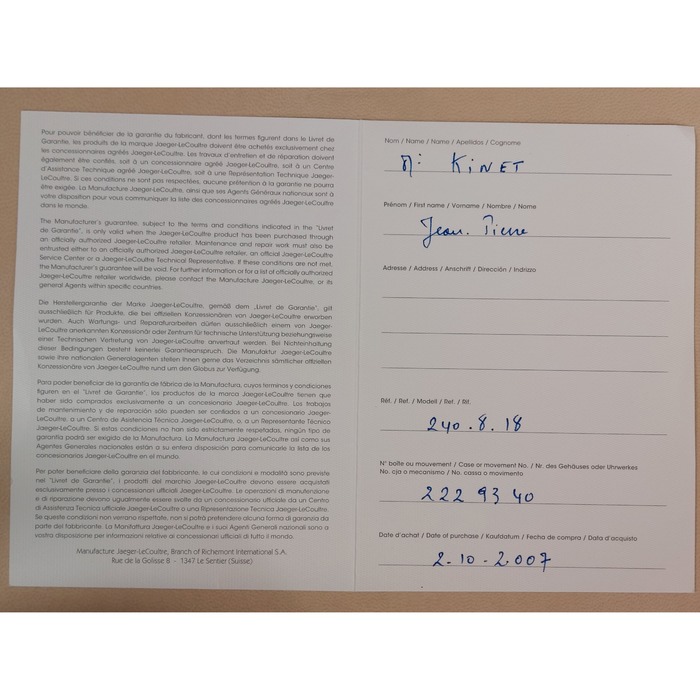 Pour pouvoir bénéficier de la garantie du fabricant, dont les termes figurent dans le Livret de
Garantie, les produits de la marque Jaeger-LeCoultre doivent être achetés exclusivement chez
les concessionnaires agréés Jaeger-LeCoultre. Les travaux d'entretien et de réparation doivent
également être confiés, soit à un concessionnaire agréé Jaeger-LeCoultre, soit à un Centre
d'Assistance Technique agréé Jaeger-LeCoultre, soit à une Représentation Technique Jaeger-
LeCoultre. Si ces conditions ne sont pas respectées, aucune prétention à la garantie ne pourra
être exigée. La Manufacture Jaeger-LeCoultre, ainsi que ses Agents Généraux nationaux sont à
votre disposition pour vous communiquer la liste des concessionnaires agréés Jaeger-LeCoultre
dans le monde.
The Manufacturer's guarantee, subject to the terms and conditions indicated in the "Livret
de Garantie", is only valid when the Jaeger-LeCoultre product has been purchased through
an officially authorized Jaeger-LeCoultre retailer. Maintenance and repair work must also be
entrusted either to an officially authorized Jaeger-LeCoultre retailer, an official Jaeger-LeCoultre
Service Center or a Jaeger-LeCoultre Technical Representative. If these conditions are not met,
the Manufacturer's guarantee will be void. For further information or for a list of officially authorized
Jaeger-LeCoultre retailer worldwide, please contact the Manufacture Jaeger-LeCoultre, or its
general Agents within specific countries.
Die Herstellergarantie der Marke Jaeger-LeCoultre, gemäß dem „Livret de Garantie", gilt
ausschließlich für Produkte, die bei offiziellen Konzessionären von Jaeger-LeCoultre erworben
wurden. Auch Wartungs- und Reparaturarbeiten dürfen ausschließlich einem von Jaeger-
LeCoultre anerkannten Konzessionär oder Zentrum für technische Unterstützung beziehungsweise
einer Technischen Vertretung von Jaeger-LeCoultre anvertraut werden. Bei Nichteinhaltung
dieser Bedingungen besteht keinerlei Garantieanspruch. Die Manufaktur Jaeger-LeCoultre
sowie ihre nationalen Generalagenten stellen Ihnen gerne das Verzeichnis sämtlicher offiziellen
Konzessionäre von Jaeger-LeCoultre rund um den Globus zur Verfügung.
Para poder beneficiar de la garantía de fábrica de la Manufactura, cuyos términos y condiciones
figuran en el "Livret de Garantie", los productos de la marca Jaeger-LeCoultre tienen que
haber sido comprados exclusivamente a un concesionario Jaeger-LeCoultre. Los trabajos
de mantenimiento y de reparación sólo pueden ser confiados a un concesionario Jaeger-
LeCoultre, a un Centro de Asistencia Técnica Jaeger-LeCoultre, o, a un Representante Técnico
Jaeger-LeCoultre. Si estas condiciones no han sido estrictamente respetadas, ningún tipo de
garantía podrá ser exigido de la Manufactura. La Manufactura Jaeger-LeCoultre así como sus
Agentes Generales nacionales están a su entera disposición para comunicarle la lista de los
concesionarios Jaeger-LeCoultre en el mundo.
Per poter beneficiare della garanzia del fabbricante, le cui condizioni e modalità sono previste
nel "Livret de Garantie", i prodotti del marchio Jaeger-LeCoultre devono essere acquistati
esclusivamente presso i concessionari ufficiali Jaeger-LeCoultre. Le operazioni di manutenzione
e di riparazione devono ugualmente essere svolte da un concessionario ufficiale da un Centro
di Assistenza Tecnica ufficiale Jaeger-LeCoultre o una Ripresentazione Tecnica Jaeger-LeCoultre.
Se queste condizioni non verrano rispettate, non si potrà pretendere alcuna forma di garanzia da
parte del fabbricante. La Manifattura Jaeger-LeCoultre e i suoi Agenti Generali nazionali sono a
vostra disposizione per informazioni relative ai concessionari ufficiali di tutto il mondo.
Manufacture Jaeger-LeCoultre, Branch of Richemont International S.A.
Rue de la Golisse 8 - 1347 Le Sentier (Suisse)
Nom / Name / Name / Apellidos / Cognome
M: KINET
Prénom / First name / Vorname / Nombre / Nome
Jean. Pierre
Adresse / Address / Anschrift / Dirección / Indirizzo
Réf. / Ref. / Modell / Ref. / Rif.
240.8.18
N° boîte ou mouvement / Case or movement No. / Nr. des Gehäuses oder Uhrwerkes
No. cja o mecanismo / No. cassa o movimento
222 93 40
Date d'achat / Date of purchase / Kaufdatum / Fecha de compra / Data d'acquisto
2.10.2.007